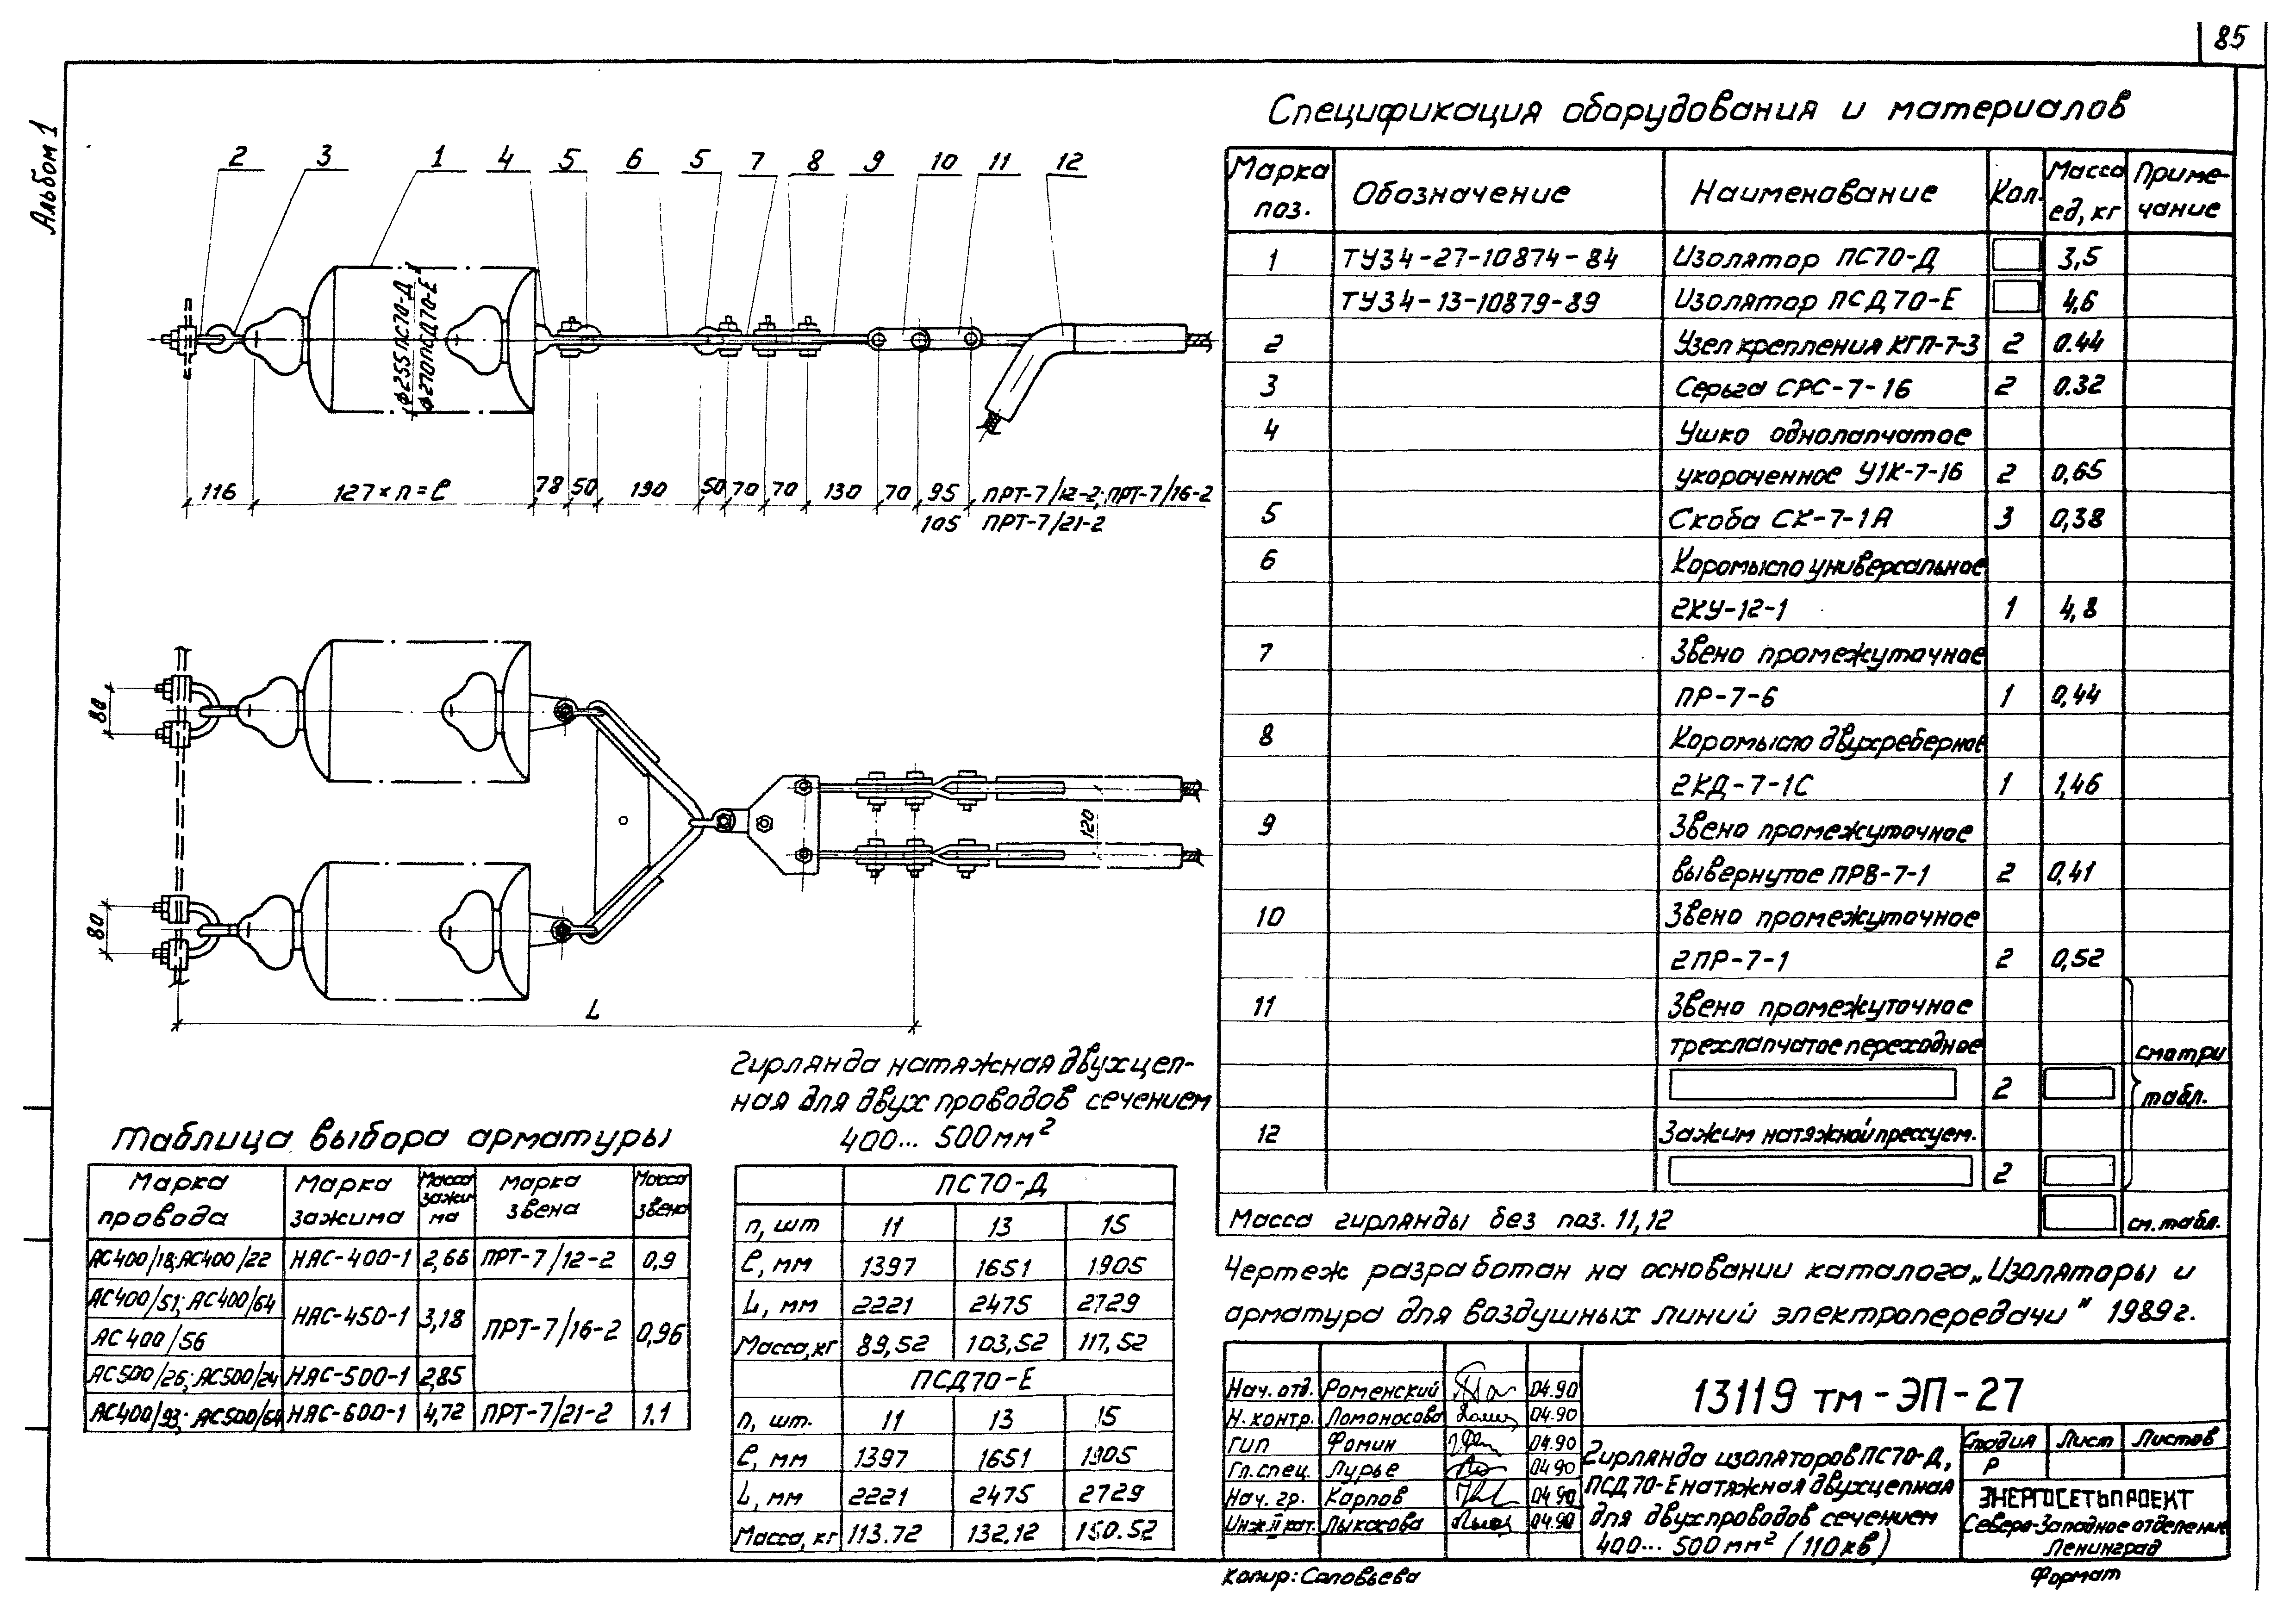 85
Альбом 1
2 3 1 4 5 6 5 7 8 9 10 11 12
ϕ255ПС70-Д
ϕ270ПСД70-Е
116 127×п=ℓ 78 50 190 50 70 70 130 70 95 ПРТ-7/12-2; ПРТ-7/16-2
105 ПРТ-7/21-2
80
80
120
L
Гирлянда натяжная двухцеп-
ная для двух проводов сечением
400... 500мм²
Таблица выбора арматуры
Марка провода Марка зажима Масса зажима Марка звена Масса звена
АС400/18; АС400/22 НАС-400-1 2,66 ПРТ-7/12-2 0,9
АС400/51; АС400/64 НАС-450-1 3,18 ПРТ-7/16-2 0,96
АС400/56
АС500/26; АС500/24 НАС-500-1 2,85
АС400/93; АС500/64 НАС-600-1 4,72 ПРТ-7/21-2 1.1
ПС70-Д
п, шт 11 13 15
ℓ, мм 1397 1651 1905
L, мм 2221 2475 2729
Масса, кг 89,52 103,52 117,52
ПСД70-Е
п, шт. 11 13 15
ℓ, мм 1397 1651 1905
L, мм 2221 2475 2729
Масса, кг 113.72 132,12 150.52
Спецификация оборудования и материалов
Марка поз. Обозначение Наименование Кол. Масса ед, кг Приме-чание
1 ТУ34-27-10874-84 Изолятор ПС70-Д 3,5
ТУ34-13-10879-89 Изолятор ПСД70-Е 4,6
2 Узел крепления КГП-7-3 2 0.44
3 Серьга СРС-7-16 2 0.32
4 Ушко однолапчатое
укороченное У1К-7-16 2 0,65
5 Скоба СК-7-1А 3 0,38
6 Коромысло универсальное
2КУ-12-1 1 4,8
7 Звено промежуточное
ПР-7-6 1 0,44
8 Коромысло двухреберное
2КД-7-1С 1 1,46
9 Звено промежуточное
вывернутое ПРВ-7-1 2 0,41
10 Звено промежуточное
2ПР-7-1 2 0,52
11 Звено промежуточное
трехлапчатое переходное смотри
2 табл.
12 Зажим натяжной прессуем.
2
Масса гирлянды без поз. 11,12 см. табл.
Чертеж разработан на основании каталога „Изоляторы и
арматура для воздушных линий электропередачи" 1989г.
Нач. отд. Роменский 04.90
Н. контр. Ломоносова 04.90
ГИП Фомин 04.90
Гл. спец. Лурье 04 90
Нач. гр. Карпов 04 90
Инж. II кат. Лыкосова 04.90
13119 тм-ЭП-27
Гирлянда изоляторов ПС70-Д,
ПСД70-Е натяжная двухцепная
для двух проводов сечением
400... 500мм² (110кВ)
Стадия Лист Листов
Р
ЭНЕРГОСЕТЬПРОЕКТ
Северо-Западное отделение
Ленинград
Копир: Соловьева
Формат